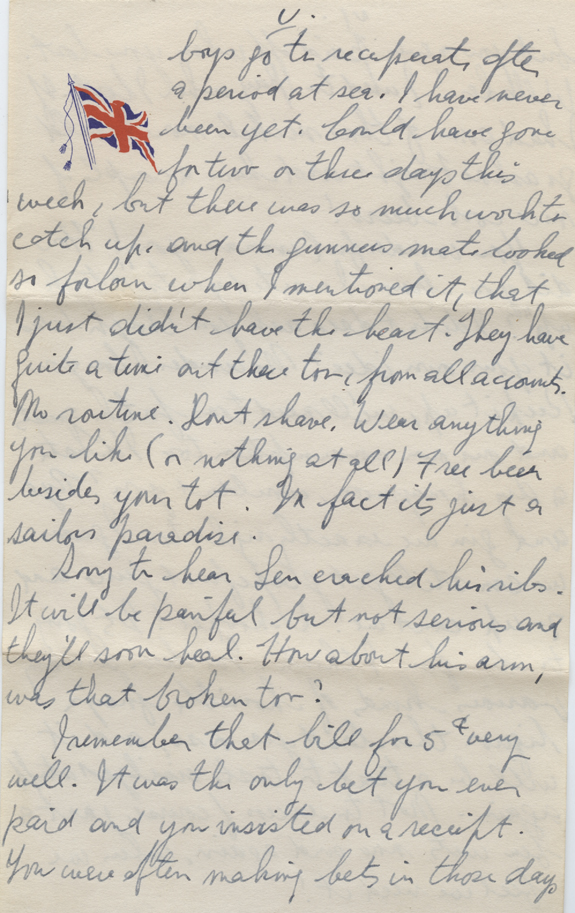 V.
boys go to recuperate after
a period at sea. I have never
been yet. Could have gone
for two or three days this
week, but there was so much work to
catch up, and the gunners mate looked
so forlorn when I mentioned it, that
I just didn't have the heart. They have
quite a time out there too, from all accounts.
No routine. Dont shave. Wear anything
you like (or nothing at all) Free beer
besides your tot. In fact its just a
sailors paradise.
Sorry to hear Len cracked his ribs.
It will be painful but not serious and
they'll soon heal. How about his arm,
was that broken too?
I remember that bill for 5¢ very
well. It was the only bet you ever
paid and you insisted on a receipt.
You were often making bets in those days